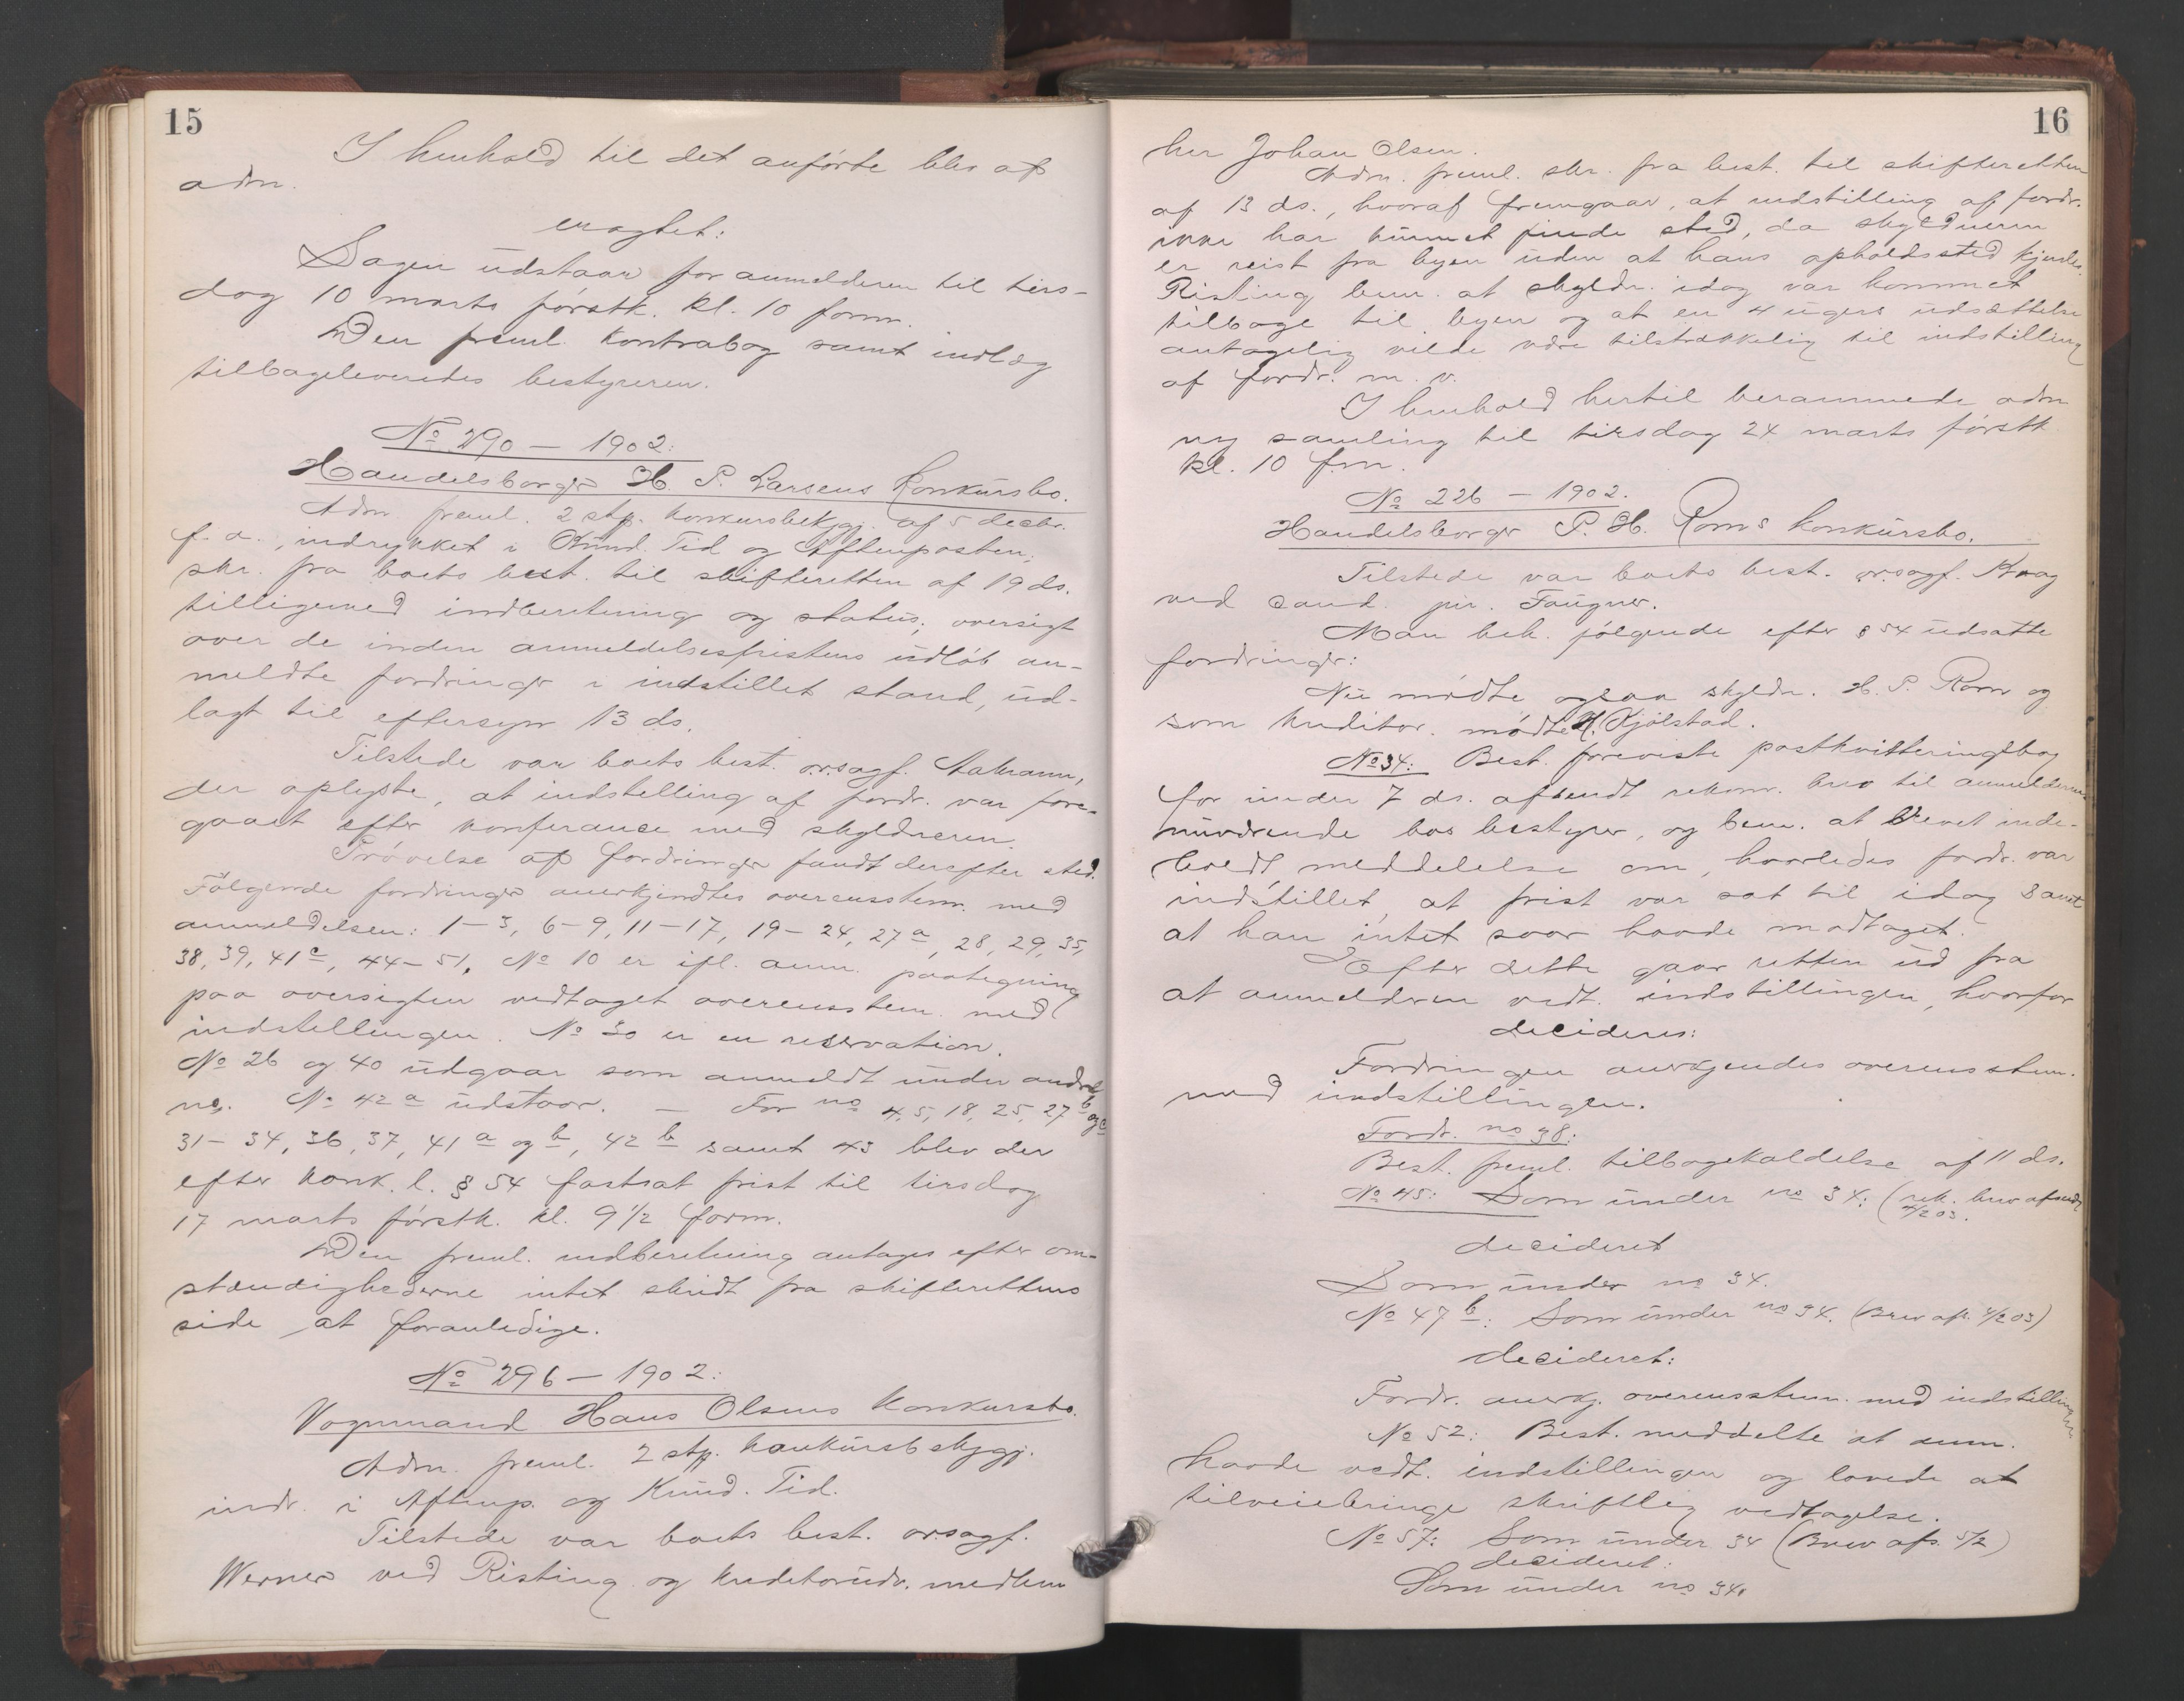 15
I henhold til det anførte blev af
adm.
eragtet:
Sagen udstaar for anmelderen til tirs-
dag 10 marts førstk. kl. 10 form.
Den freml. kontrabog samt indlæg
tilbageleveredes bestyreren.
No 290 – 1902:
Handelsborger H. P. Larsens Konkursbo.
Adm. freml. 2 stk. konkursbekjgj. af 5 decbr.
f. a., indrykket i Kund. Tid og Aftenposten;
skr. fra boets best. til skifteretten af 19 ds.
tilligemed indberetning og status; oversigt
over de inden anmeldelsesfristens udløb an-
meldte fordringer i indstillet stand, ud-
lagt til eftersyn 13 ds.
Tilstede var boets best. o.r.sagf.
der oplyste, at indstilling af fordr. var fore-
gaaet efter konferance med skyldneren.
Prøvelse af fordringer fandt derefter sted.
Følgende fordringer anerkjendtes overensstem. med
anmeldelsen: 1–3, 6–9, 11–17, 19–24, 27a, 28, 29, 35,
38, 39, 41c, 44–51. No 10 er ifl. anm. paategning
paa oversigten vedtaget overensstem. med
indstillingen. No 30 er en reservation.
No 26 og 40 udgaar som anmeldt under andre
no. No 42a udstaar. – For no 4, 5, 18, 25, 27b og c
31–34, 36, 37, 41a og b, 42b samt 43 blev der
efter konk. l. § 54 fastsat frist til tirsdag
17 marts førstk. kl. 9 1/2 form.
Den freml. indberetning antages efter om-
stændighederne intet skridt fra skifterettens
side at foranledige.
No 296 – 1902:
Vognmand Hans Olsens Konkursbo.
Adm. freml. 2 stk. konkursbekjgj.
indr. i Aftenp. og Kund. Tid.
Tilstede var boets best. o.r.sagf.
Werner ved Risting og kreditorudv. medlem
16
her Johan Olsen.
Adm. freml. skr. fra best. til skifteretten
af 13 ds., hvoraf fremgaar, at indstilling af fordr.
ikke har kunnet finde sted, da skyldneren
er reist fra byen uden at hans opholdssted kjendes.
Risting bem. at skyldn. idag var kommet
tilbage til byen og at en 4 ugers udsættelse
antagelig vilde være tilstrækkelig til indstilling
af fordr. m. v.
I henhold hertil berammede adm
ny samling til tirsdag 24 marts førstk
kl. 10 f.m.
No 226 – 1902.
Handelsborger P. H. Roms konkursbo.
Tilstede var boets best. o.r.sagf. Kraag
ved cand. jur. Faugner.
Man beh. følgende efter § 54 udsatte
fordringer:
Nu mødte ogsaa skyldn. H. P. Rom og
som kreditor. mødte H. Kjølstad.
No 34: Best. foreviste postkvitteringsbog
for under 7 ds. afsendt rekom. brev til anmelderens
nuværende bos bestyrer, og bem. at brevet inde-
holdt meddelelse om, hvorledes fordr. var
indstillet, at frist var sat til idag samt
at han intet svar havde modtaget.
Efter dette gaar retten ud fra
at anmelderen vedt. indstillingen, hvorfor
decideres:
Fordringen anerkjendes overensstem.
med indstillingen.
Fordr. no 38:
Best. freml. tilbagekaldelse af 11 ds.
No 45: Som under no 34: (rek. brev afsendt
4/2 03.
decideret
Som under no 34.
No 47b: Som under no 34. (Brev afs. 4/2 03)
decideret:
Fordr. anerkj. overensstem. med indstillingen
No 52: Best. meddelte at anm.
havde vedt. indstillingen og lovede at
tilveiebringe skriftlig vedtagelse.
No 57: Som under 34 (Brev afs. 5/2)
decideret:
Som under no 34.